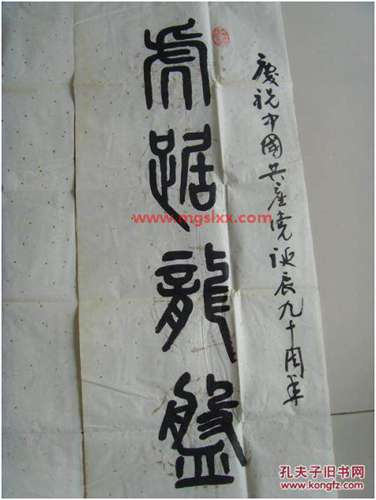 慶祝中國共產党诞辰九十周年
虎踞龍盤
www.mgslxx.com
孔夫子旧书网
www.kongfz.com